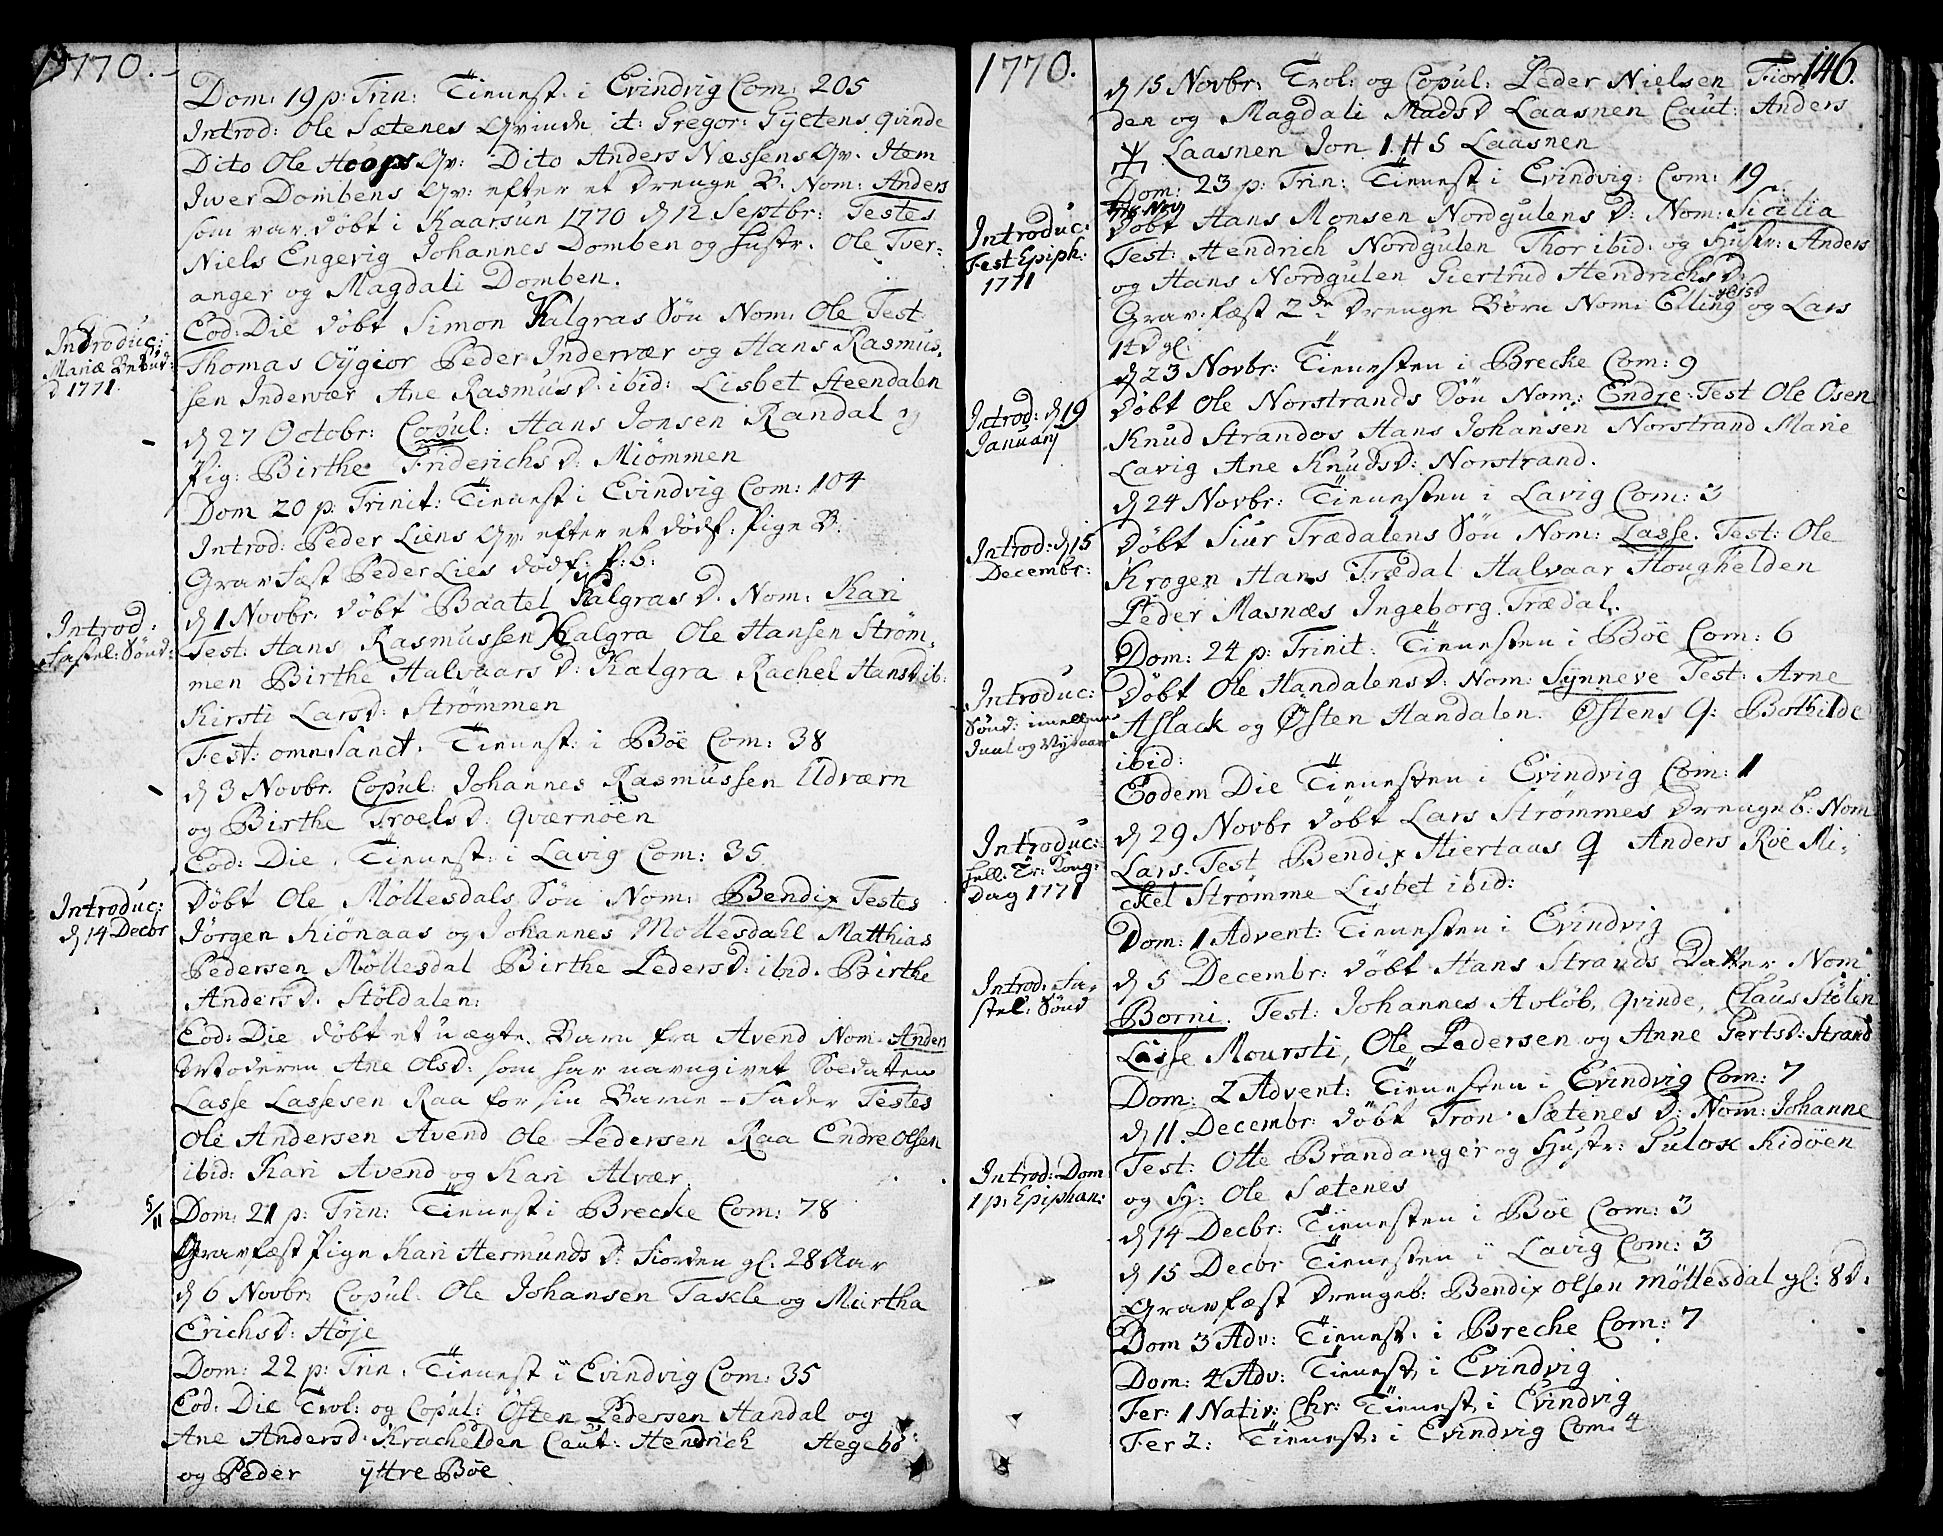 1770.
Dom: 19 p: Trin: Tienest. i Evindvig Com: 205
Introd: Ole Sætenes Qvinde it: Gregor: Gÿetens qvinde
Dito Ole Hoops Qv: Dito Anders Næssens Qv. Item
Iwer Dombens Qv: efter et Drenge B: Nom: Anders
som var döbt i Kaarsun 1770 d 12 Septbr: Testes
Niels Engevig Johannes Domben og Hustr. Ole Tver-
anger og Magdali Domben.
Eod: Die döbt Simon Kalgras Sön Nom: Ole Test:
Introduc:
Mariæ Bebud:
d 1771.
Thomas Oÿgior Peder Indervær og Hans Rasmus-
sen Indevær Ane Rasmusd: ibid: Lisbet Steendalen
d 27 Octobr: Copul: Hans Jonsen Randal og
Pig: Birthe Friderichsd: Miömmen
Dom 20 p: Trinit: Tienest i Evindvig Com: 104
Introd: Peder Liens Qv efter et dödf: Pige B:
Gravfæst Peder Lies dödf: p: b:
d 1 Novbr. döbt Baatel Kalgras D. Nom: Kari
Introd:
Fastel: Sönd:
Test: Hans Rasmussen Kalgra Ole Hansen Ström-
men Birthe Halvaars D: Kalgra Rachel Hansd ib:
Kirsti Larsd: Strömmen
Fest: omn Sanct. Tienest: i Böe Com: 38
d 3 Novbr. Copul: Johannes Rasmussen Udværn
og Birthe Troelsd: Qværnöen
Eod: Die Tienest: i Lavig Com: 35
Introduc:
d 14 Decbr
Döbt Ole Möllesdals Sön Nom: Bendix Testes
Jörgen Kiönaas og Johannes Mollesdahl Matthias
Pedersen Möllesdal Birthe Pedersd: ibid. Birthe
Andersd. Stöldalen:
Eod: Die döbt et uægte Barn fra Avend Nom: Anden
Moderen Ane Olsd: som har navngivet Soldaten
Lasse Lassesen Raa for sin Barne-Fader Testes
Ole Andersen Avend Ole Pedersen Raa Endre Olsen
ibid: Kari Avend og Kari Alvær.
5/11 Dom: 21 p: Trin: Tienest i Brecke Com: 78
Gravfæst Pige Kari Hermunds D: Fiorden gl: 28 Aar
d 6 Novbr Copul. Ole Johansen Takle og Martha
Erichsd: Höje
Dom: 22 p: Trin: Tienest i Evindvig Com: 35
Eod: Die Trol: og Copul: Östen Pedersen Handal og
Ane Andersd: Krachelden Caut: Hendrich Hegebö
og Peder ÿttre Böe
1770.
146.
d 15 Novbr: Trol: og Copul: Peder Nielsen Fior-
den og Magdali Madsd Laasnen Caut: Anders
Laasnen Jon I H S Laasnen
Dom: 23 p: Trin: Tienest i Evindvig: Com: 19
18 Nov
Introduc:
Fest Epiph:
1771
Döbt Hans Monsen Nordgulens D: Nom: Sicilia
Test: Hendrich Nordgulen Thor ibid. og Hustr: Anders
og Hans Nordgulen Giertrud Hendrichsd:
Gravfæst 2de Drenge Börn Nom: Elling gl 15 D og Lars
14 D gl:
d 23 Novbr: Tienesten i Brecke Com: 9
Introd: d 19
Januarÿ
Döbt Ole Norstrands Sön Nom: Endre Test Ole Osen
Knud Strandos Hans Johansen Norstrand Marie
Lavig Ane Knudsd: Norstrand.
d 24 Novbr: Tienesten i Lavig Com: 3
Introd: d 15
Decembr:
Döbt Siur Trædalens Sön Nom: Lasse. Test: Ole
Krogen Hans Trædal Halvaar Houghelden
Peder Masnæs Ingeborg Trædal.
Dom: 24 p: Trinit: Tienesten i Böe Com: 6
Introduc:
Sönd: imellem
Juul og Nÿtaar
Döbt Ole Handalens D: Nom: Sÿnneve Test: Arne
Aslack og Östen Handalen. Östens Q: Bothilde
ibid:
Eodem Die Tienesten i Evindvig Com: 1
d 29 Novbr döbt Lars Strömmes Drengeb: Nom
Introduc:
hell: Tr: Kong:
Dag 1771
Lars. Test Bendix Hiertaas Q Anders Röe Mi-
ckel Strömme Lisbet ibid:
Dom: 1 Advent: Tienesten i Evindvig
Introd: Fa-
stel: Sönd
d 5 Decembr: döbt Hans Strands Datter Nom
Borni. Test: Johannes Avlöb, qvinde, Claus Stölen
Lasse Moursti, Ole Pedersen og Anne Gertsd: Strand
Dom: 2 Advent: Tienesten i Evindvig Com: 7
d 11. Decembr: döbt Tron Sætenes D: Nom: Johanne
Introd: Dom
1 p: Epiphan:
Test: Otte Brandanger og Hustr: Gulox Kidöen
og Hs: Ole Sætenes
d 14 Decbr: Tienesten i Böe Com: 3
d 15 Decbr Tienesten i Lavig Com: 3
Gravfæst Drengeb: Bendix Olsen Möllesdal gl: 8 D:
Dom 3 Adv: Tienest. i Brecke Com: 7
Dom: 4 Adv: Tienest, i Evindvig
Fer: 1 Nativ: Chr: Tienest i Evindvig
Fer 2: Tienest: i Evindvig Com: 4